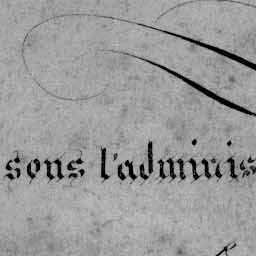 sous l'adminis